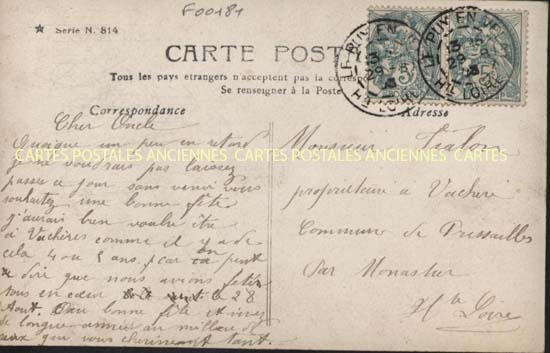 F00181
★ Serie N. 814
CARTE POST
Tous les pays étrangers n'acceptent pas la correspo
Se renseigner à la Poste
Correspondance
Adresse
LE PUY-EN-VELAY
Hte LOIRE
LE PUY-EN-VELAY
Hte LOIRE
CARTES POSTALES ANCIENNES CARTES POSTALES ANCIENNES CARTES
Cher Oncle
Quoique un peu en retard
je ne voudrais pas laisser
passer ce jour sans venir vous
souhaiter une bonne fête
j'aurais bien voulu être
à Vachères comme il y a de
cela 4 ou 5 ans, car on peut
dire que nous avions fêter
tous en cœur le 28
Aout. bonne fête et
de longue année au milieu de
ceux qui vous cherissent tant.
Monsieur
proprietaire à Vachère
Commune de Pressailles
Par Monastier
Hte Loire